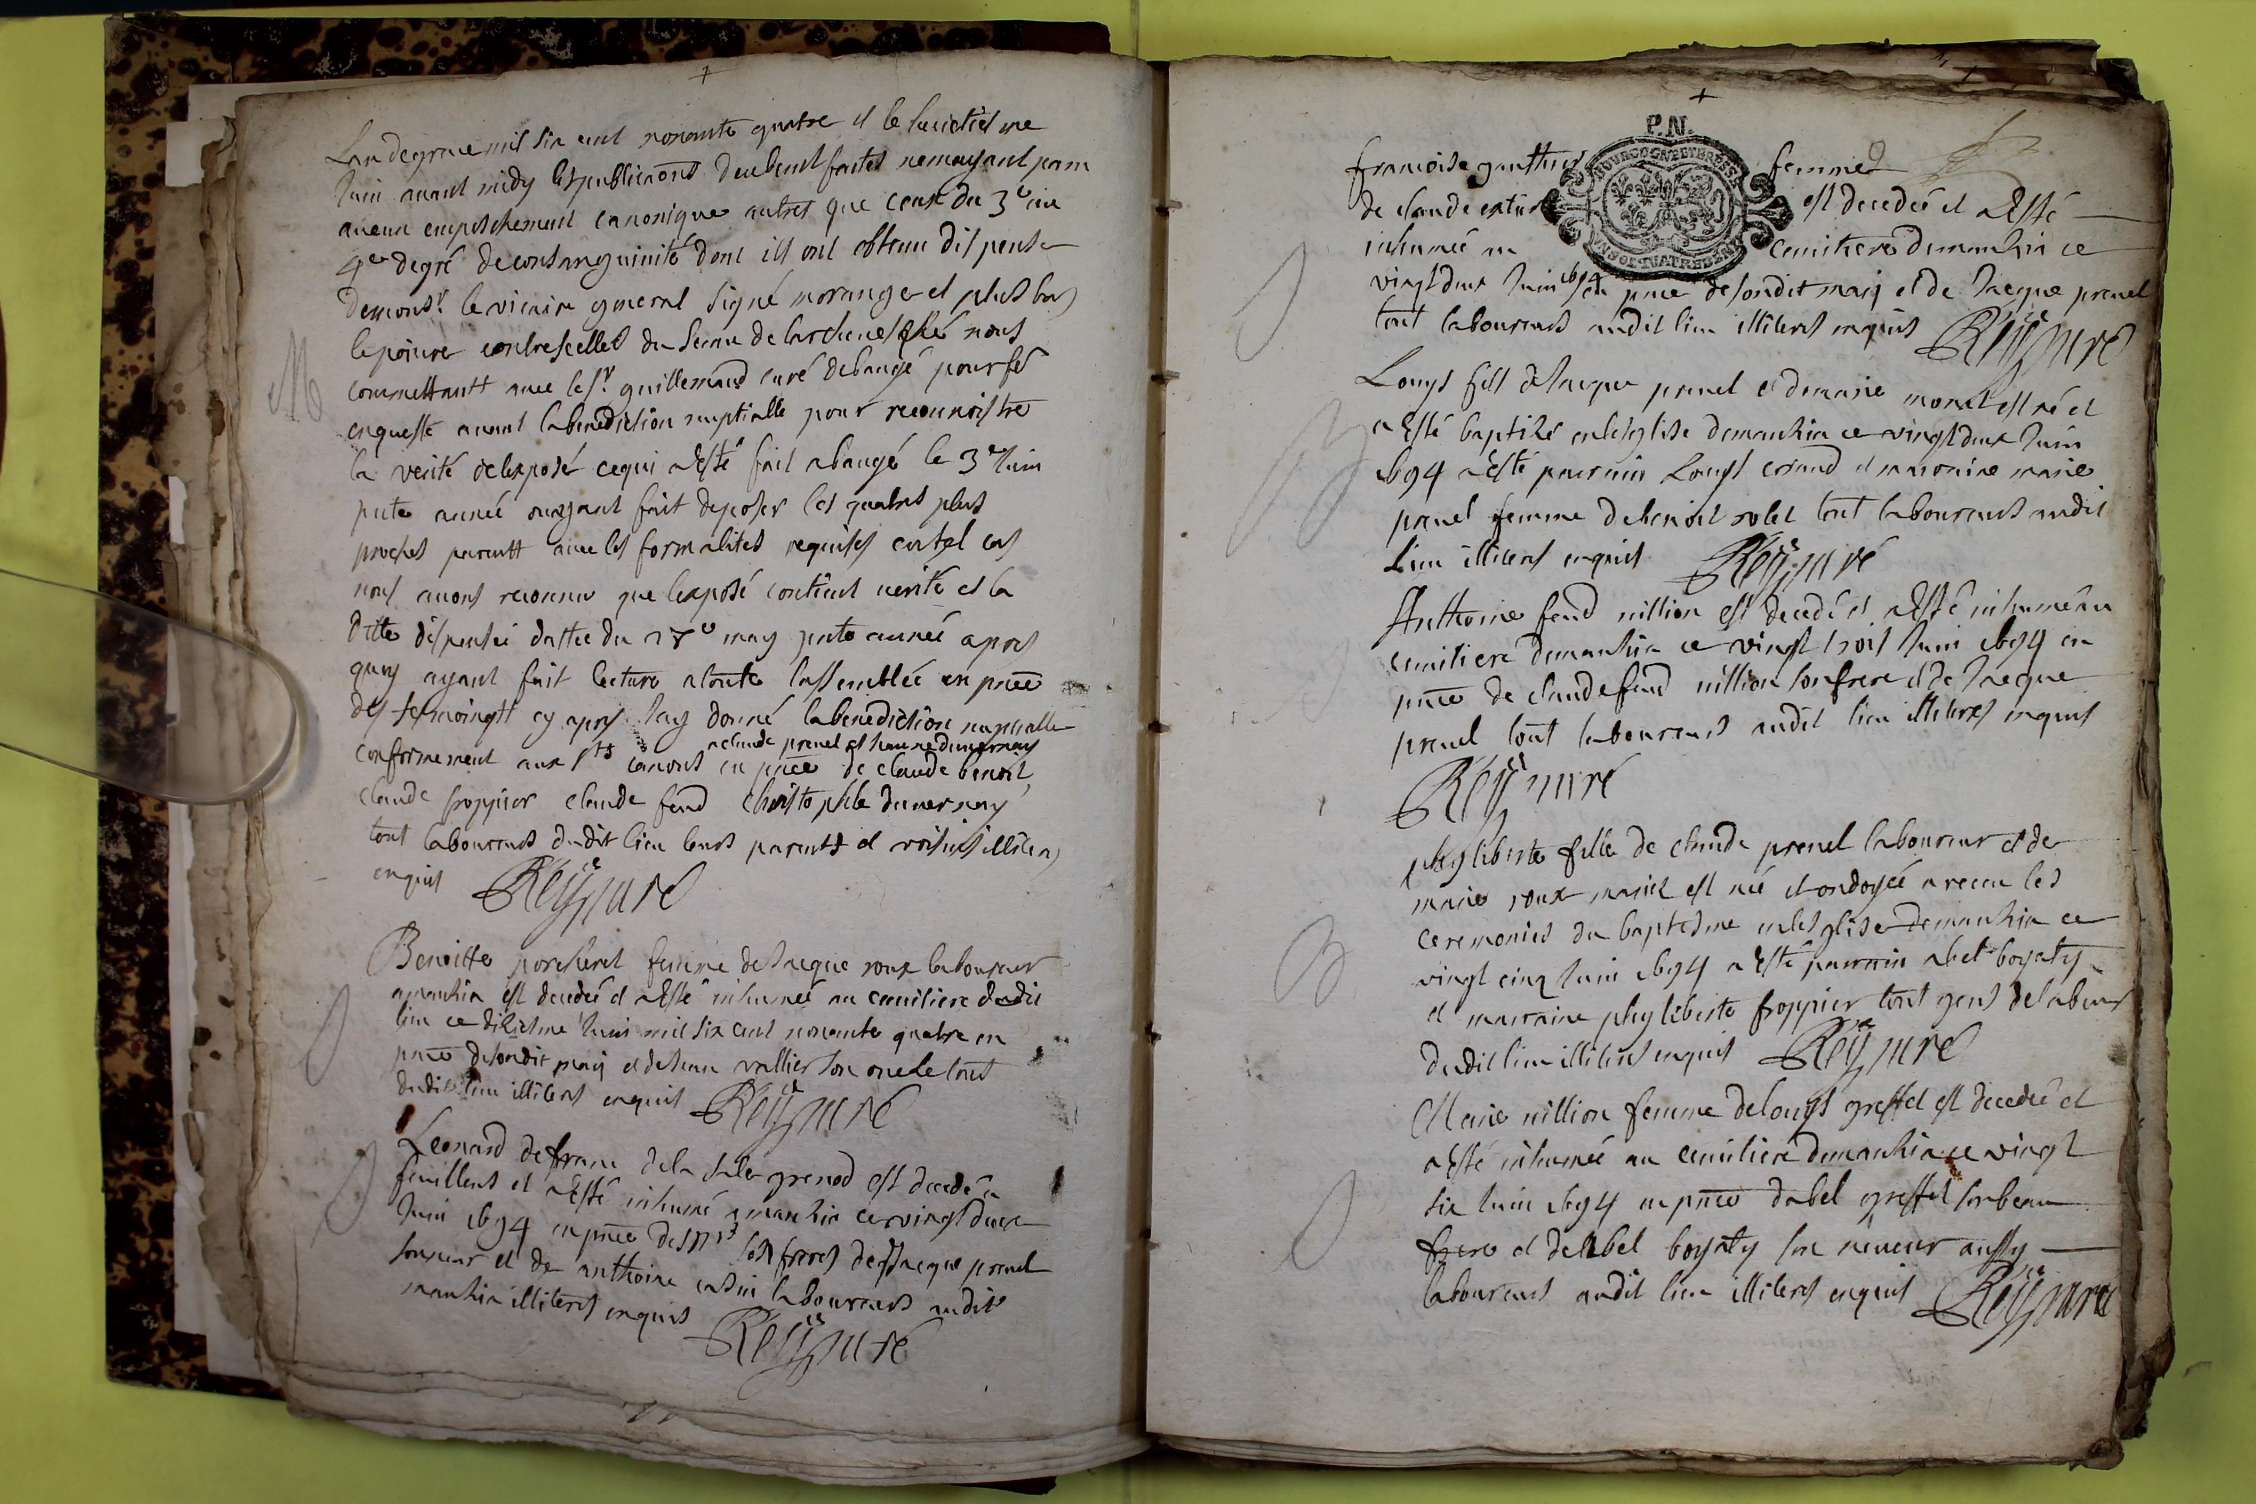 Lan de grace mil six cent nonante quatre et le huictiesme
Juin avant midy les publications deubement faites ne mayant paru
aucun empeschement canonique autres que ceux du 3e au
4e degré de consanguinité dont ils ont obtenu dispense
de monsr. le vicaire general signé morange et plus bas
lepoivre contrescellés du sceau de larchevesché nous
commettantt avec le sr. guillemaud curé de baugé pour fé
enqueste avant la benediction nuptialle pour reconnoistre
la verité de lexposé ce qui a esté fait a baugé le 3e Juin
pnte année ou ayant fait deposer les quatres plus
proches parentt avec les formalités requises en tel cas
nous avons reconnu que lexposé contient verité et la
ditte dispense dattée du may pnte année apres
quoy ayant fait lecture a toute lassemblée en pnce
des tesmoingtt cy apres Jay donné la benediction nuptialle
a claude prevel et Jeanne duvernay
conformement aux sts canons en pnce de claude benoit
claude froppier claude fend christophle duvernay
tout laboureurs dudit lieu leurs parentt et voisins illiteres
enquis Rey curé
M
Benoitte porcheret femme de Jacque roux laboureur
a mankia est decedée et a esté inhumée au cemitiere dudit
lieu ce dixiesme Juin mil six cent nonante quatre en
pnce de sondit mary et de Jean vallier son oncle tout
dudit lieu illiteres enquis Rey curé
Leonard de franc de la grenod est decedé a
feuillens et a esté inhumé a mankia ce vingt deux
Juin 1694 en pnce de ses freres de Jacque prevel
et de anthoine laboureurs audit
mankia illiteres enquis Rey curé
P.N.
BOURGOGNE ET BRESSE
francoise gauthier femme
de claude est decedée et a esté
inhumée au cemitiere de mankia ce
vingt deux Juin 1694 en pnce de sondit mary et de Jacque prevel
tout laboureurs audit lieu illiteres enquis Rey curé
Louys fils de Jacque prevel et de marie morel est né et
a esté baptisé en lesglise de mankia ce vingt deux Juin
1694 a esté parrain Louys et marraine marie
prevel femme de benoit rolet tout laboureurs audit
lieu illiteres enquis Rey curé
Anthoine fend nillion est decedé et a esté inhumé au
cemitiere de mankia ce vingt trois Juin 1694 en
pnce de claude fend nillion son frere et de Jacque
prevel tout laboureurs audit lieu illiteres enquis
Rey curé
phyliberte fille de claude prevel laboureur et de
marie roux mariés est née et ondoyée a receu les
ceremonies du baptesme en lesglise de mankia ce
vingt cinq Juin 1694 a esté parrain abel boyaty
et marraine phyliberte froppier tout gens de labeur
dudit lieu illiteres enquis Rey curé
Marie nillion femme de louys greffet est decedée et
a esté inhumée au cemitiere de mankia ce vingt
six Juin 1694 en pnce dabel greffet son beau
frere et de abel boyaty son neveur aussy
laboureurs audit lieu illiteres enquis Rey curé